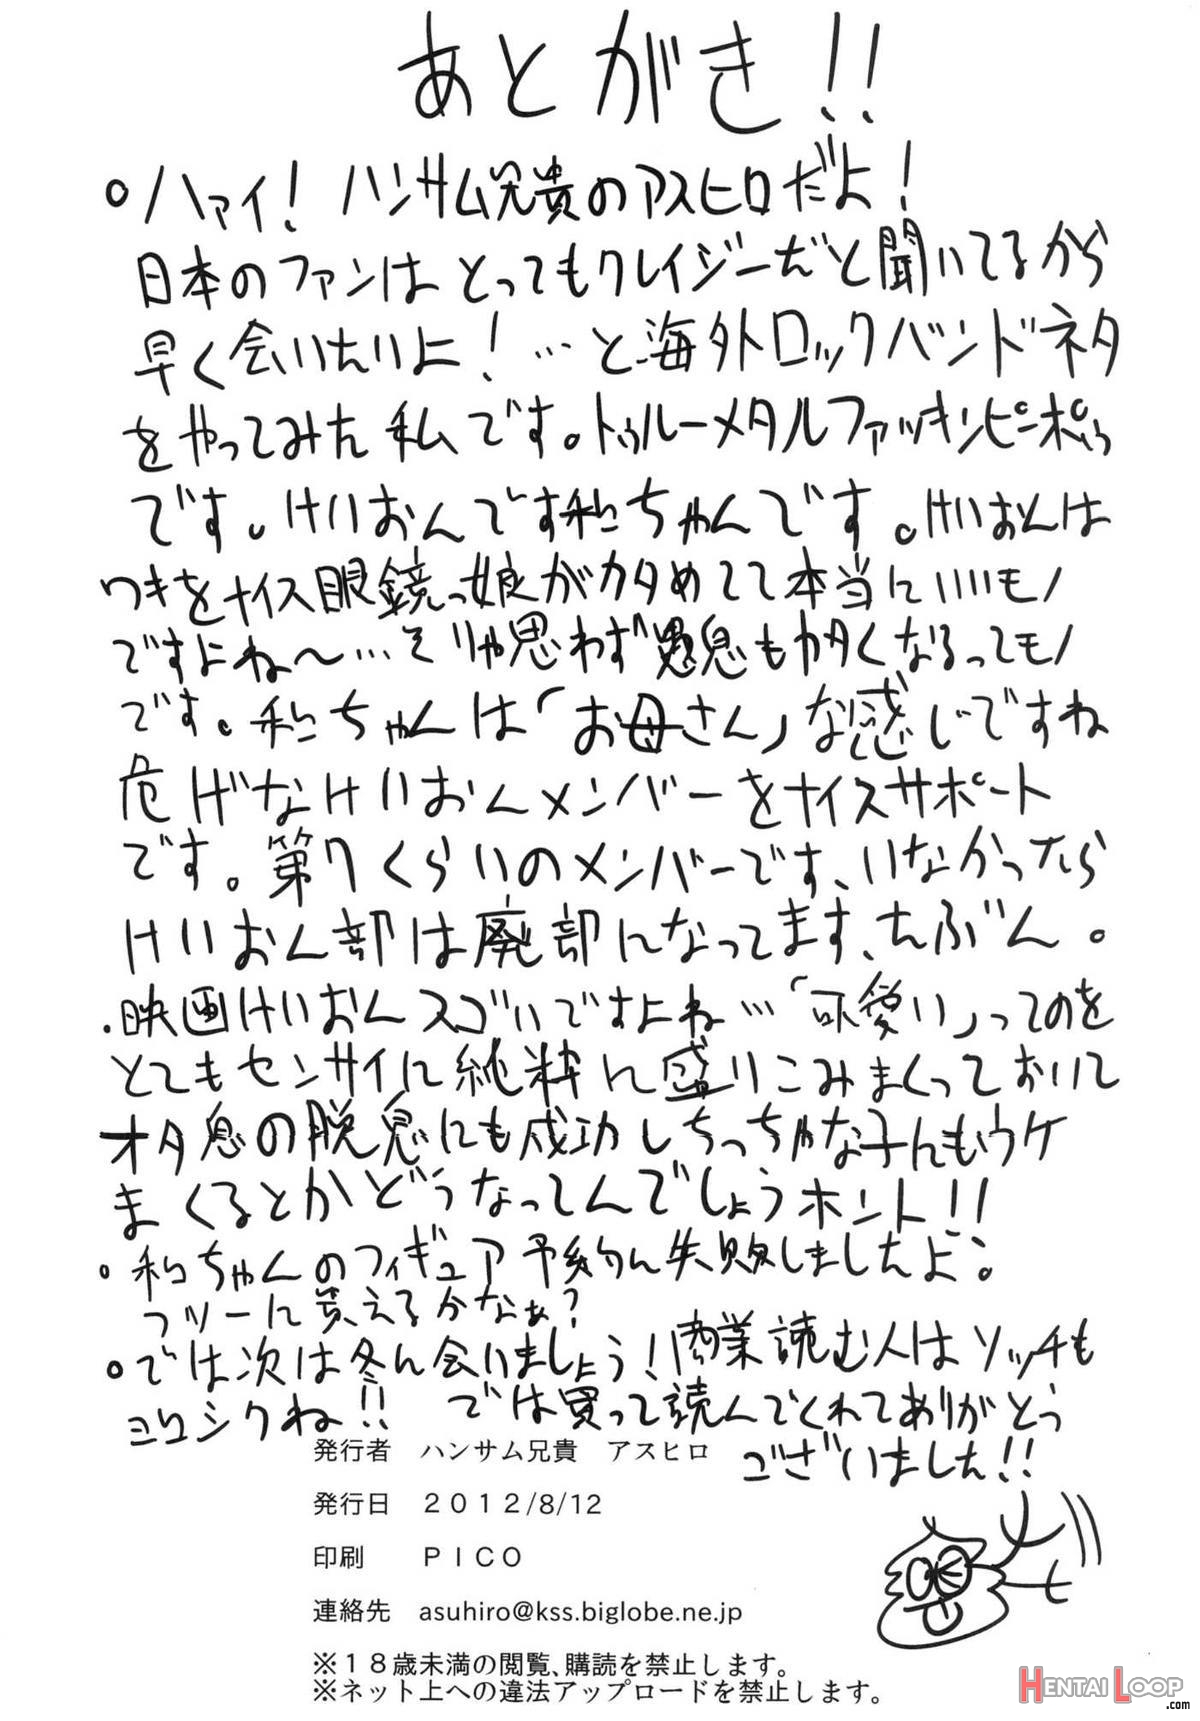 あとがき!!
ハァイ! ハンサム兄貴のアスヒロだよ!
日本のファンはとってもクレイジーだと聞いてるから
早く会いたいよ! …と海外ロックバンドネタ
をやってみた私です。トゥルーメタルファッキンピーポゥ
です。けいおんです和ちゃんです。けいおんは
ワキをナイス眼鏡っ娘がカタめてて本当にいいモノ
ですよね〜…そりゃ思わず愚息もカタくなるってモノ
です。和ちゃんは「お母さん」な感じですね
危げなけいおんメンバーをナイスサポート
です。第7くらいのメンバーです、いなかったら
けいおん部は廃部になってます、たぶん。
・映画けいおんスゴいですよね…「可愛い」ってのを
とてもセンサイに純粋に盛りこみまくっておいて
オタ臭の脱臭にも成功しちっちゃな子にもウケ
まくるとかどうなってんでしょうホント!!
和ちゃんのフィギュア予約に失敗しましたよ。
フツーに買えるかなぁ?
では次は冬に会いましょう! 商業読む人はソッチも
ヨロシクね!! では買って読んでくれてありがとう
ございました!!
発行者 ハンサム兄貴 アスヒロ
発行日 2012/8/12
印刷 PICO
連絡先 asuhiro@kss.biglobe.ne.jp
※18歳未満の閲覧、購読を禁止します。
※ネット上への違法アップロードを禁止します。
HENTAI LOOP
.com